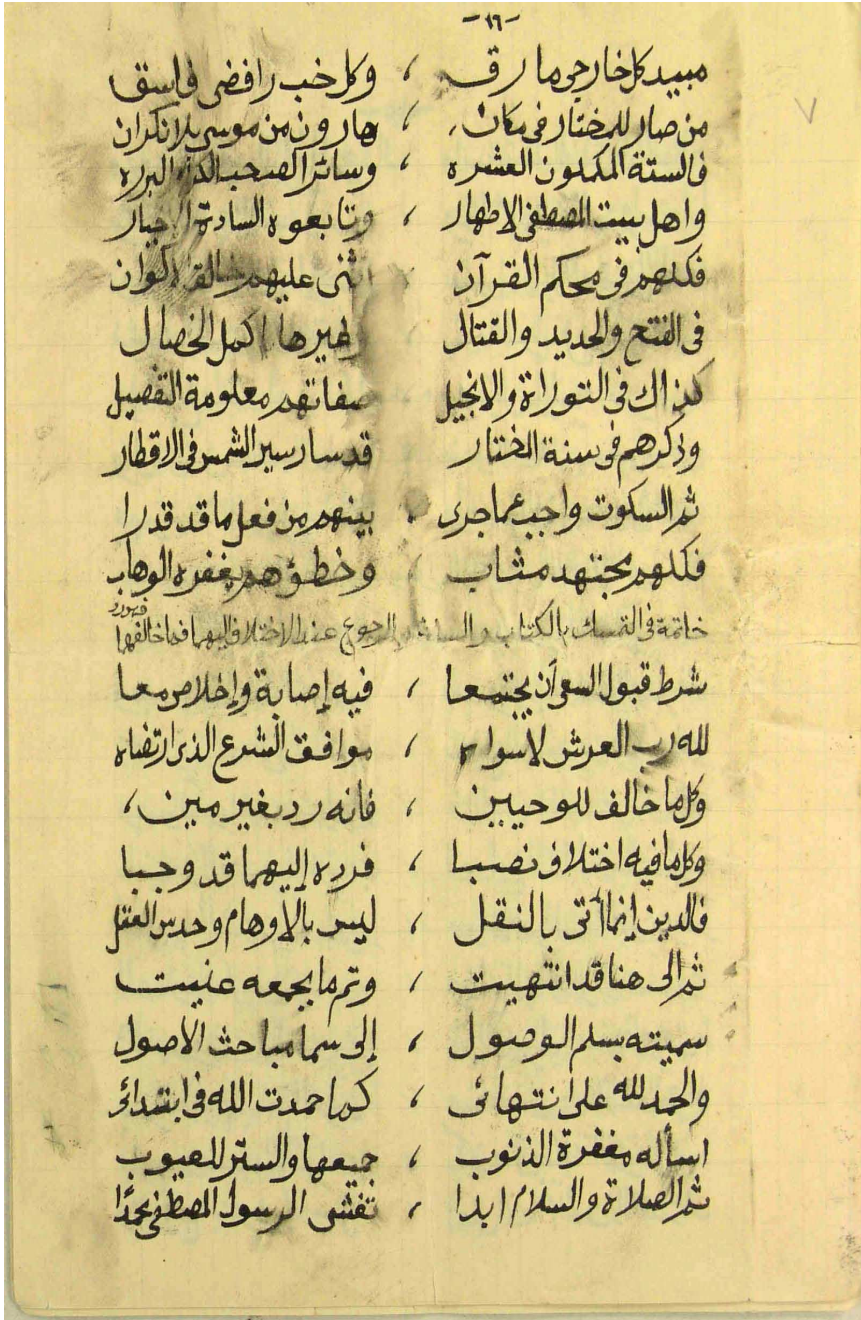 -١٦-
مبيد كل خارجي مارق ، وكل خب رافضي فاسق
من صار للمختار في مكان ، هارون من موسى بلا نكران
فالستة المكملون العشره ، وسائر الصحب البرره
واهل بيت المصطفى الاطهار ، وتابعوه السادة الاخيار
فكلهم في محكم القرآن اثنى عليهم خالق الاكوان
في الفتح والحديد والقتال وغيرها اكمل الخصال
كذاك في التوراة والانجيل صفاتهم معلومة التفصيل
وذكرهم في سنة المختار قد سار سير الشمس في الاقطار
ثم السكوت واجب عما جرى ، بينهم من فعل ما قد قدرا
فكلهم مجتهد مثاب ، وخطؤهم يغفره الوهاب
خاتمة في التمسك بالكتاب والسنة والرجوع عند الاختلاف إليهما فما خالفهما فهو رد
شرط قبول السعى أن يجتمعا ، فيه إصابة وإخلاص معا
لله رب العرش لا سواه ، موافق الشرع الذى ارتضاه
وكل ما خالف للوحيين ، فانه رد بغير مين ،
وكل ما فيه اختلاف نصبا ، فرده إليهما قد وجبا
فالدين إنما أتى بالنقل ، ليس بالاوهام وحدس العقل
ثم الى هنا قد انتهيت ، وتم ما بجمعه عنيت
سميته بسلم الوصول ، إلى سما مباحث الأصول
والحمد لله على انتهائى ، كما حمدت الله في ابتدائى
اسأله مغفرة الذنوب ، جميعها والستر للعيوب
ثم الصلاة والسلام ابدا ، تغشى الرسول المصطفى محمدًا